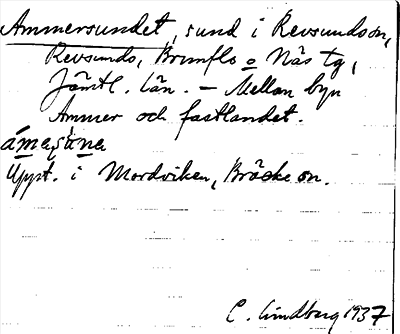 Ammersundet, sund i Revsundson,
Revsunds, Brunflo o Näs tg,
Jämtl. län. – Mellan byn
Ammer och fastlandet.
Uppt. i Mordviken, Bräcke sn.
C. Lindberg 1937